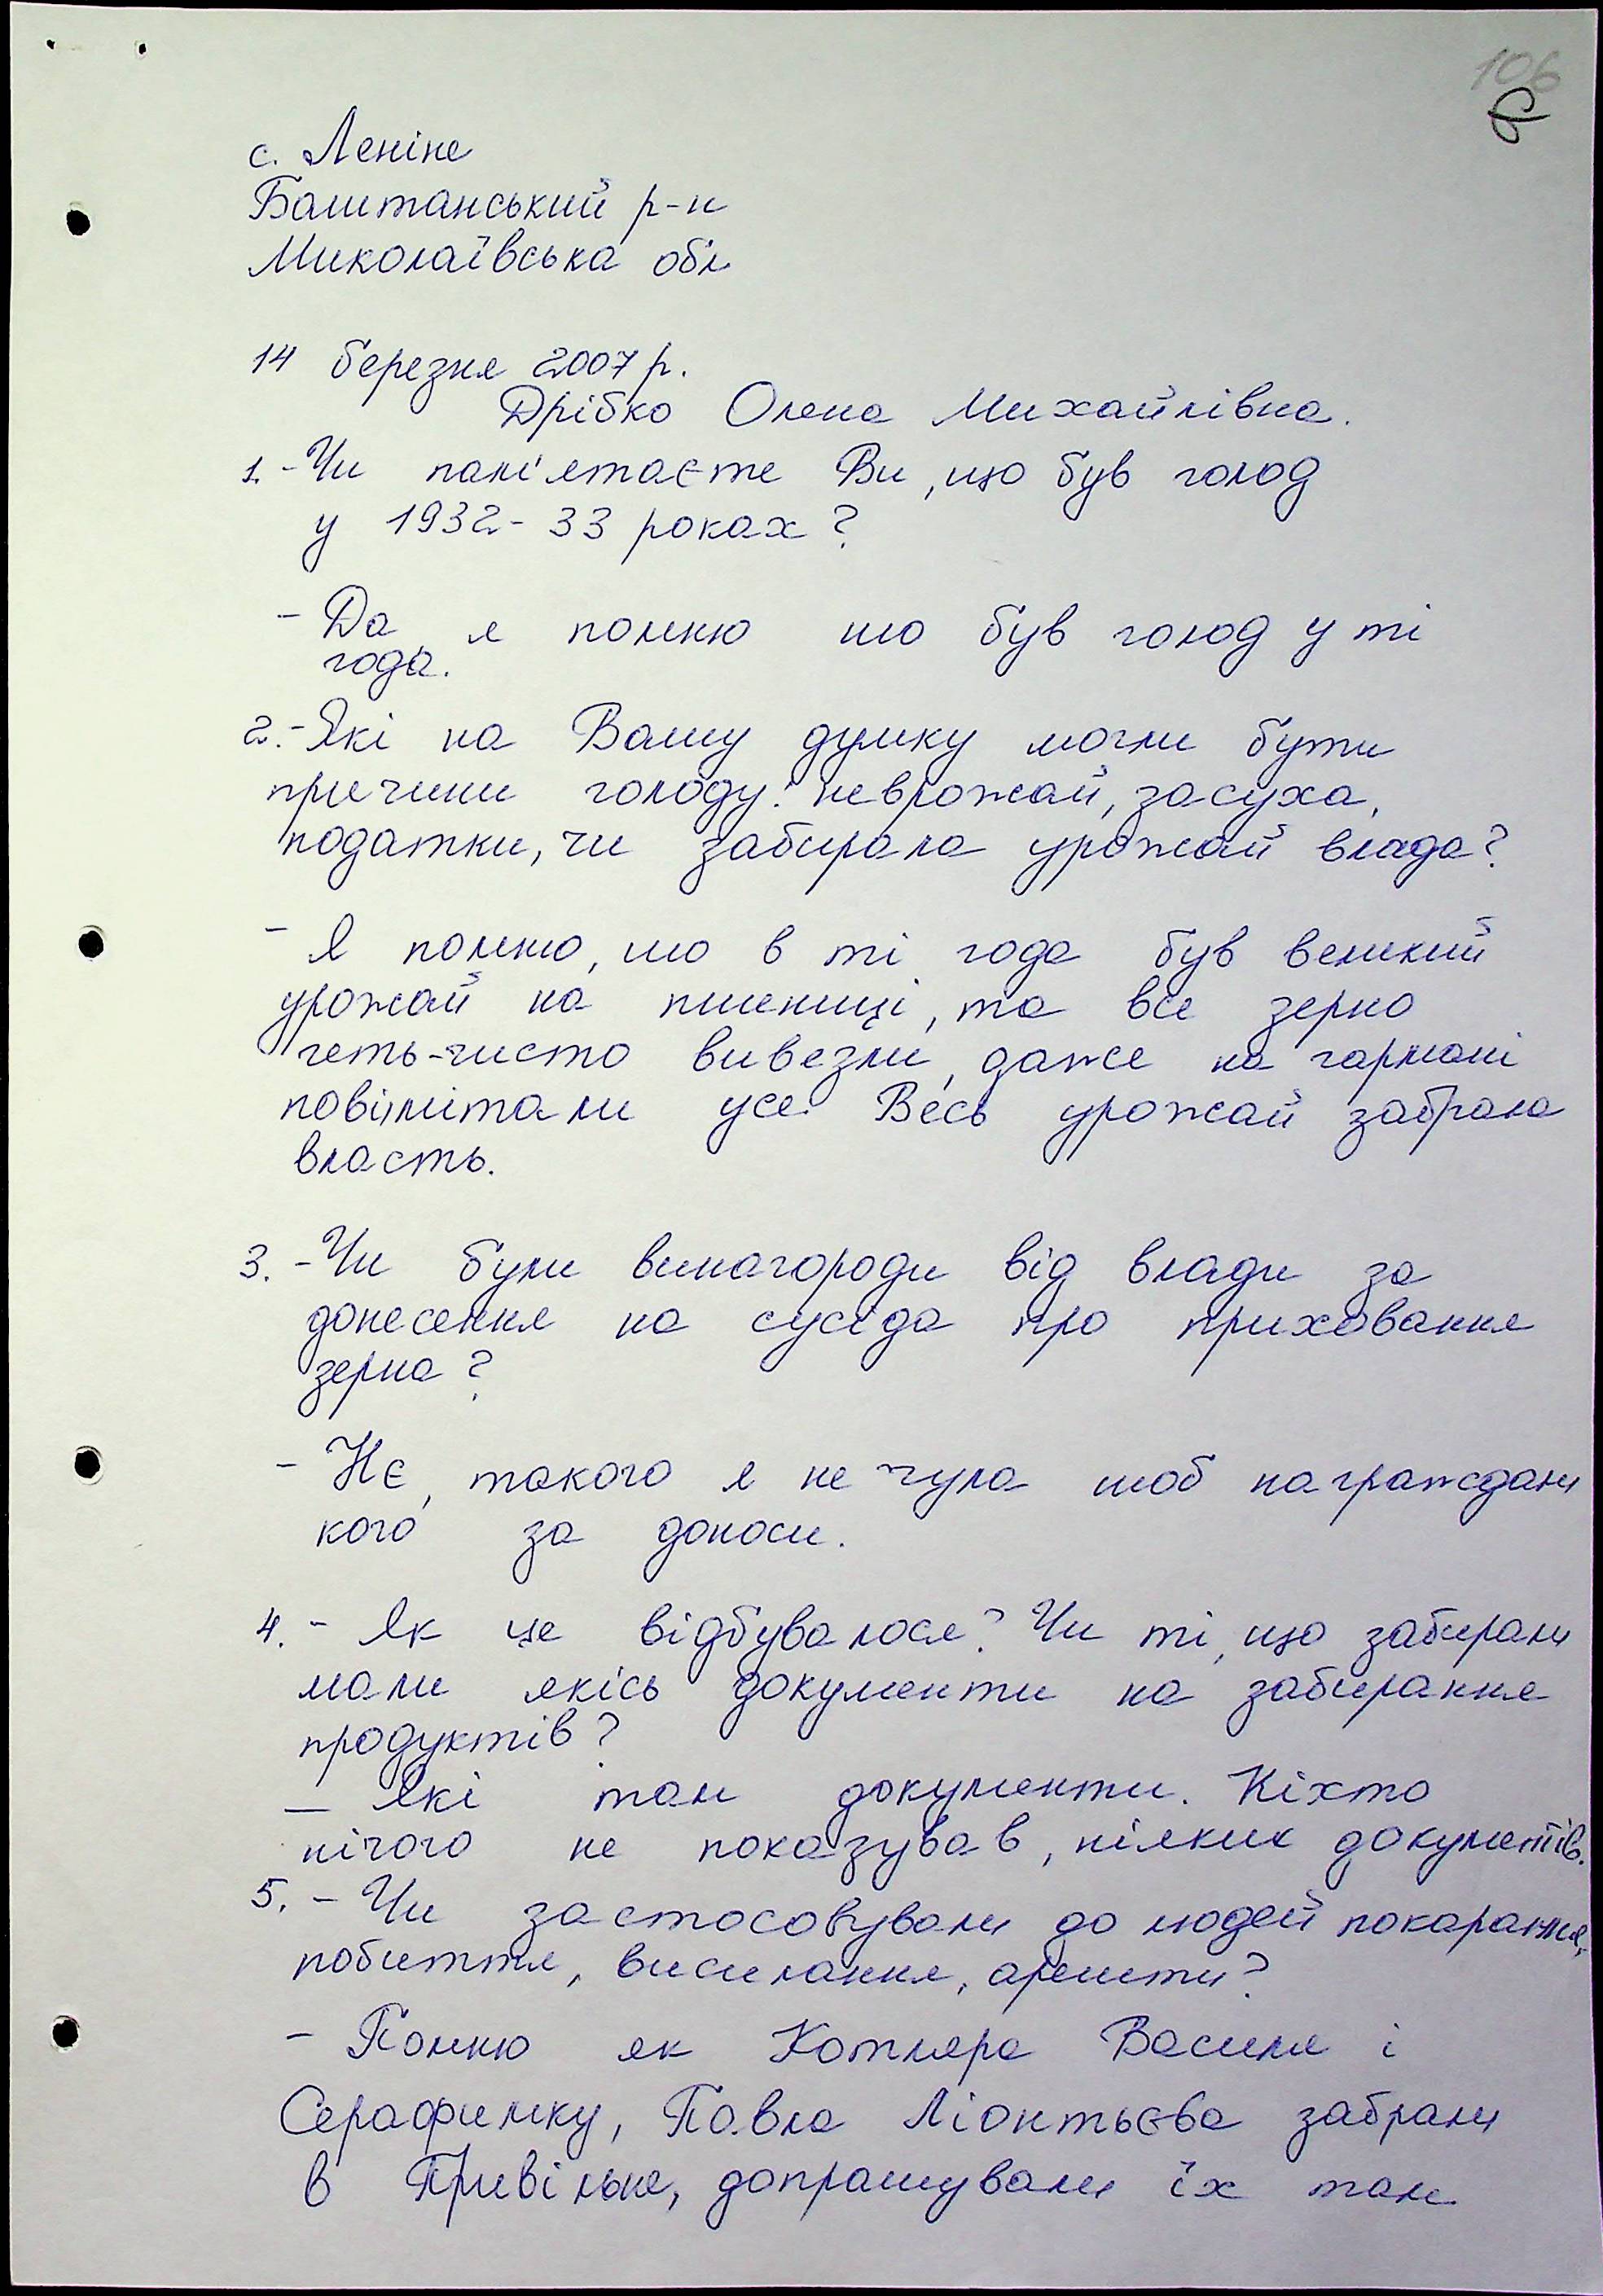 106
с. Леніне
Баштанський р-н
Миколаївська обл
14 березня 2007 р.
Дрібко Олена Михайлівна.
1. - Чи пам'ятаєте Ви, що був голод
у 1932-33 роках?
- Да, я помню шо був голод у ті
года.
2. - Які на Вашу думку могли бути
причини голоду: неврожай, засуха,
податки, чи забирала урожай влада?
- Я помню, шо в ті года був великий
урожай на пшениці, та все зерно
геть-чисто вивезли, даже на гармані
повимітали усе. Весь урожай забрала
власть.
3. - Чи були винагороди від влади за
донесення на сусіда про приховання
зерна?
- Нє, такого я не чула шоб награждали
кого за доноси.
4. - Як це відбувалося? Чи ті, що забирали
мали якісь документи на забирання
продуктів?
- Які там документи. Ніхто
нічого не показував, ніяких документів.
5. - Чи застосовували до людей покарання,
побиття, висилання, арешти?
- Помню як Котляра Василя і
Серафимку, Павла Ліонтьєва забрали
в Привільне, допрашували їх там